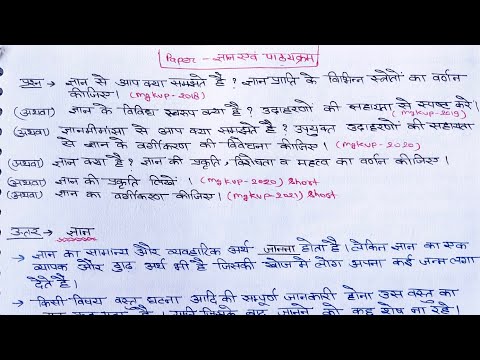 Paper - ज्ञान एवं पाठ्यक्रम
प्रश्न → ज्ञान से आप क्या समझते है ? ज्ञान प्राप्ति के विभिन्न स्त्रोतों का वर्णन
कीजिए । (mgkvp-2018)
(अथवा) ज्ञान के विविध स्वरूप क्या है ? उदाहरणों की सहायता से स्पष्ट करें।
(mgkvp-2019)
(अथवा) ज्ञानमीमांसा से आप क्या समझते है ? उपयुक्त उदाहरणों की सहायता
से ज्ञान के वर्गीकरण की विवेचना कीजिए । (mgkvp-2020)
(अथवा) ज्ञान क्या है ? ज्ञान की प्रकृति, विशेषता व महत्व का वर्णन कीजिए ।
(अथवा) ज्ञान की प्रकृति लिखें । (mgkvp-2020) Short
(अथवा) ज्ञान का वर्गीकरण कीजिए । (mgkvp-2021) Short
उत्तर → ज्ञान
→ ज्ञान का सामान्य और व्यवहारिक अर्थ जानना होता है । लेकिन ज्ञान का एक
व्यापक और गूढ़ अर्थ भी है जिसकी खोज में लोग अपना कई जन्म लगा
देते है ।
→ किसी विषय वस्तु, घटना आदि की सम्पूर्ण जानकारी होना उस वस्तु का
जानने को कुछ शेष ना रहे ।